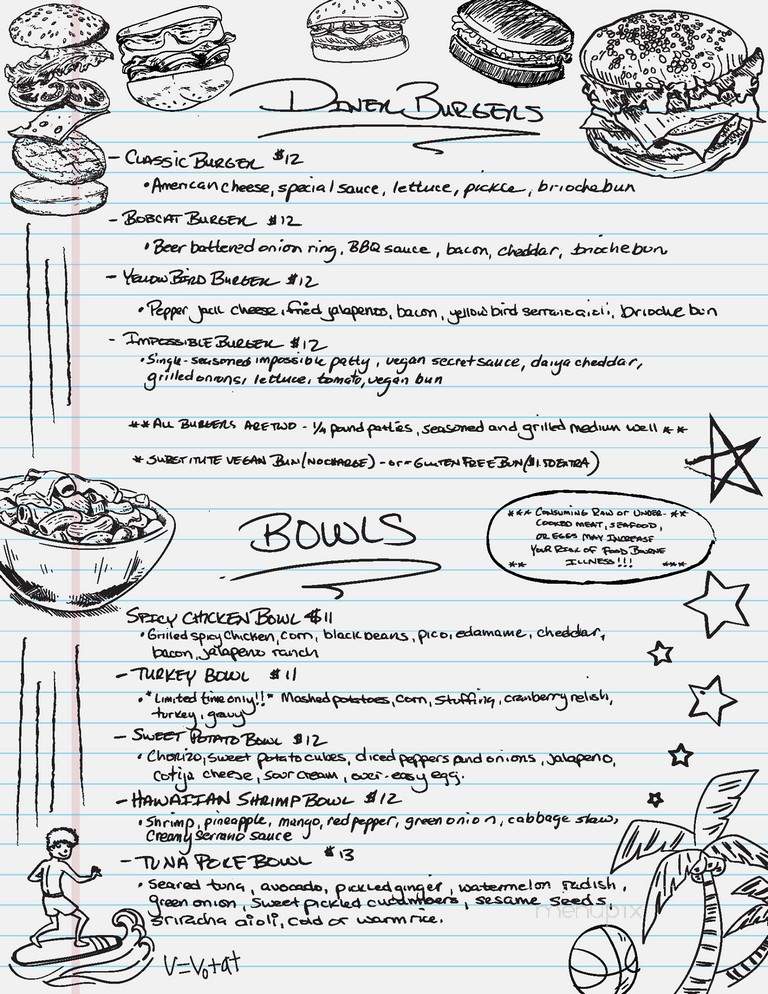 Diner Burgers
- Classic Burger $12
• American cheese, special sauce, lettuce, pickle, brioche bun
- Bobcat Burger $12
• Beer battered onion ring, BBQ sauce, bacon, cheddar, brioche bun
- Yellow Bird Burger $12
• Pepper jack cheese, fried jalapenos, bacon, yellow bird serrano aioli, brioche bun
- Impossible Burger $12
• Single-seasoned impossible patty, vegan secret sauce, daiya cheddar,
grilled onions, lettuce, tomato, vegan bun
** All Burgers are two - 1/4 pound patties, seasoned and grilled medium well **
* Substitute Vegan Bun (No charge) - or - Gluten Free Bun ($1.50 extra)
Bowls
*** Consuming Raw or Under- **
cooked meat, seafood,
or eggs may increase
your risk of food bourne
** illness!!! ***
Spicy Chicken Bowl $11
• Grilled spicy chicken, corn, black beans, pico, edamame, cheddar,
bacon, jalapeno ranch
- Turkey Bowl $11
• * Limited time only!! * Mashed potatoes, corn, stuffing, cranberry relish,
turkey, gravy
- Sweet Potato Bowl $12
• Chorizo, sweet potato cubes, diced peppers and onions, jalapeno,
cotija cheese, sour cream, over-easy egg.
- Hawaiian Shrimp Bowl $12
• Shrimp, pineapple, mango, red pepper, green onion, cabbage slaw,
creamy serrano sauce
- Tuna Poke Bowl $13
• Seared tuna, avocado, pickled ginger, watermelon radish,
green onion, sweet pickled cucumbers, sesame seeds,
sriracha aioli, cold or warm rice.
menupix
V=V₀+at